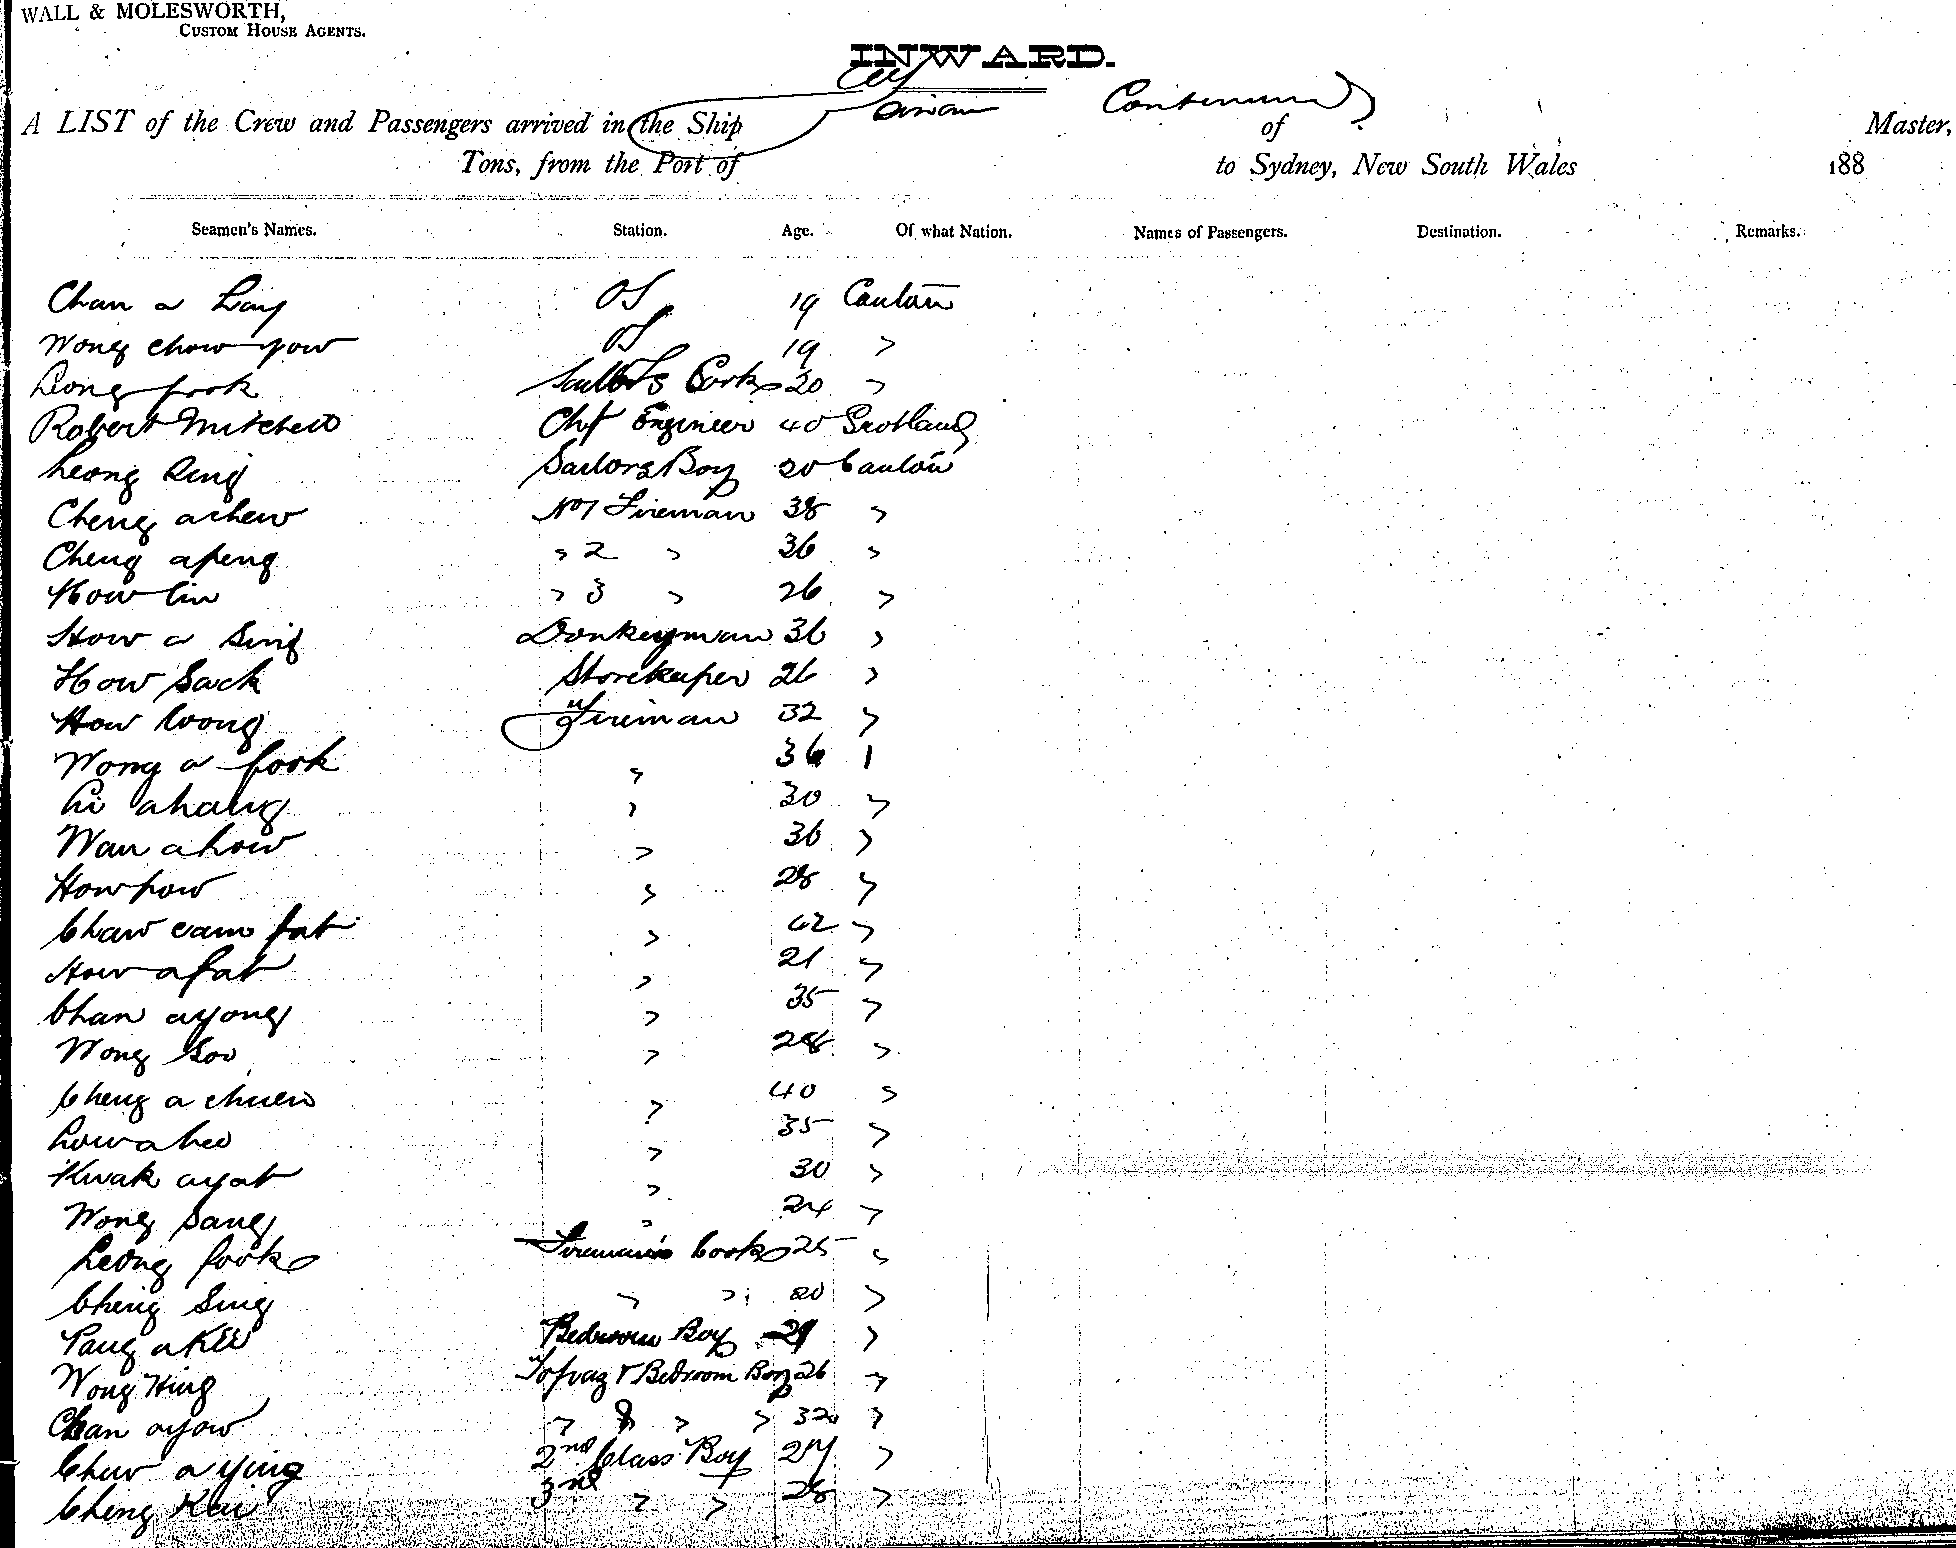 WALL & MOLESWORTH,
CUSTOM HOUSE AGENTS.
INWARD.
Continued
A LIST of the Crew and Passengers arrived in the Ship of Master,
Tons, from the Port of to Sydney, New South Wales 188
Seamen's Names. Station. Age. Of what Nation. Names of Passengers. Destination. Remarks.
Chan a Lay OS 19 Canton
Wong chow yow OS 19 "
Leong fook Sailors Cook 20 "
Robert Mitchell Chf Engineer 40 Scotland
Leong Sing Sailors Boy 20 Canton
Cheng achew No 1 Fireman 38 "
Cheng apeng " 2 " 36 "
How lin " 3 " 26 "
How a Sing Donkeyman 36 "
How Sack Storekeeper 26 "
How Wong Fireman 32 "
Wong a fook " 36 "
Li ahang " 30 "
Wan ahow " 36 "
How pow " 28 "
Chaw cam fat " 42 "
How a fat " 21 "
Chan ayong " 35 "
Wong Soo " 28 "
Cheng a chuen " 40 "
Low a hee " 35 "
Kwak ayat " 30 "
Wong Sang " 24 "
Leong fook Fireman's Cook 25 "
Cheng Sing " " 20 "
Pang a Kee Bedroom Boy 29 "
Wong Hing Topaz & Bedroom Boy 26 "
Chan ayow " & " " 32 "
Chew a ying 2nd Class Boy 27 "
Cheng Kai 3rd " " 28 "